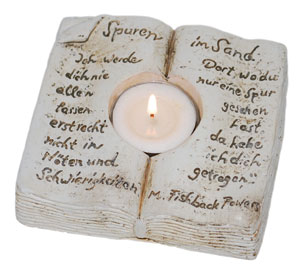 Spuren
Ich werde
dich nie
allen
lassen
erst recht
nicht in
Nöten und
Schwierigkeiten
im Sand
Dort, wo du
nur eine Spur
gesehen
hast
da habe
ich dich
getragen"
M. Fishback Powers